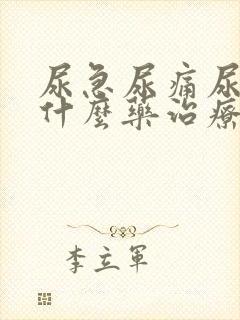 尿急尿痛尿
什麼藥治療
李立軍